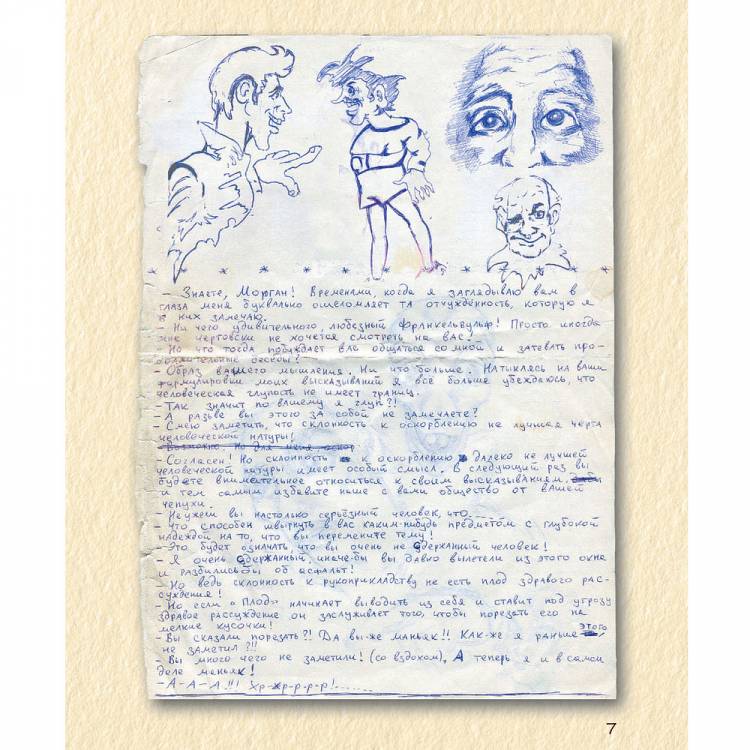 * * * * * * * * * * * *
– Знаете, Морган! Временами, когда я заглядываю вам в
глаза меня буквально ошеломляет та отчуждённость, которую я
в них замечаю.
– Ни чего удивительного, любезный Франкельвульф! Просто иногда
мне чертовски не хочется смотреть на вас.
– Но что тогда побуждает вас общаться со мной и затевать про-
должительные беседы?
– Образ вашего мышления. Ни что больше. Натыкаясь на ваши
формулировки моих высказываний я все больше убеждаюсь, что
человеческая глупость не имеет границ.
– Так значит по вашему я глуп?!
– А разьве вы этого за собой не замечаете?
– Смею заметить, что склонность к оскорблению не лучшая черта
человеческой натуры!
– Возможно. Но для меня
– Согласен! Но склонность к оскорблению далеко не лучшей
человеческой натуры имеет особый смысл. В следующий раз вы
будете внимательнее относиться к своим высказываниям
и тем самым избавите ныше с вами общество от вашей
чепухи.
– Неужели вы настолько серьёзный человек, что....
– Что способен швырнуть в вас каким-нибудь предметом с глубокой
надеждой на то, что вы перемените тему!
– Это будет означать, что вы очень не сдержанный человек!
– Я очень сдержанный, иначе-бы вы давно вылетели из этого окна
и разбились об асфальт!
– Но ведь склонность к рукоприкладству не есть плод здравого рас-
суждения!
– Но если "Плод" начинает выводить из себя и ставит под угрозу
здравое рассуждение он заслуживает того, чтобы порезать его на
мелкие кусочки!
– Вы сказали порезать?! Да вы-же маньяк!! Как-же я раньше этого
не заметил?!!
– Вы много чего не заметили! (со вздохом). А теперь я и в самом
деле меньяк!
– А-А-А.!!! Хр-хр-р-р-р!......
7